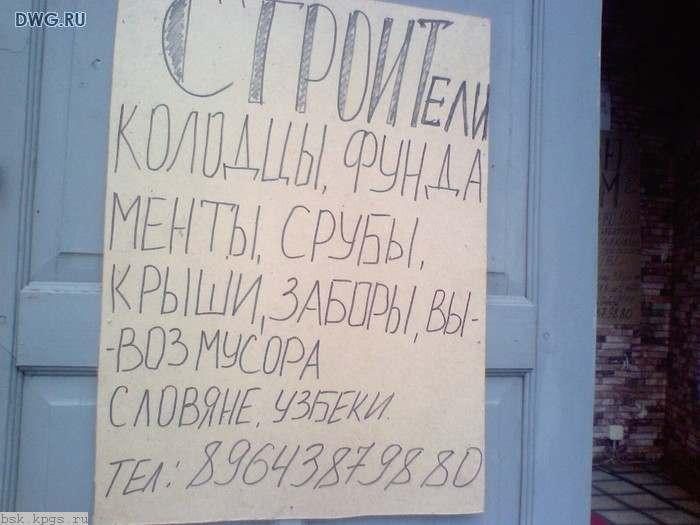 DWG.RU
СТРОИТЕЛИ
КОЛОДЦЫ, ФУНДА
МЕНТЫ, СРУБЫ,
КРЫШИ, ЗАБОРЫ, ВЫ-
-ВОЗ МУСОРА
СЛОВЯНЕ, УЗБЕКИ.
ТЕЛ: 89643879880
bsk.kpgs.ru